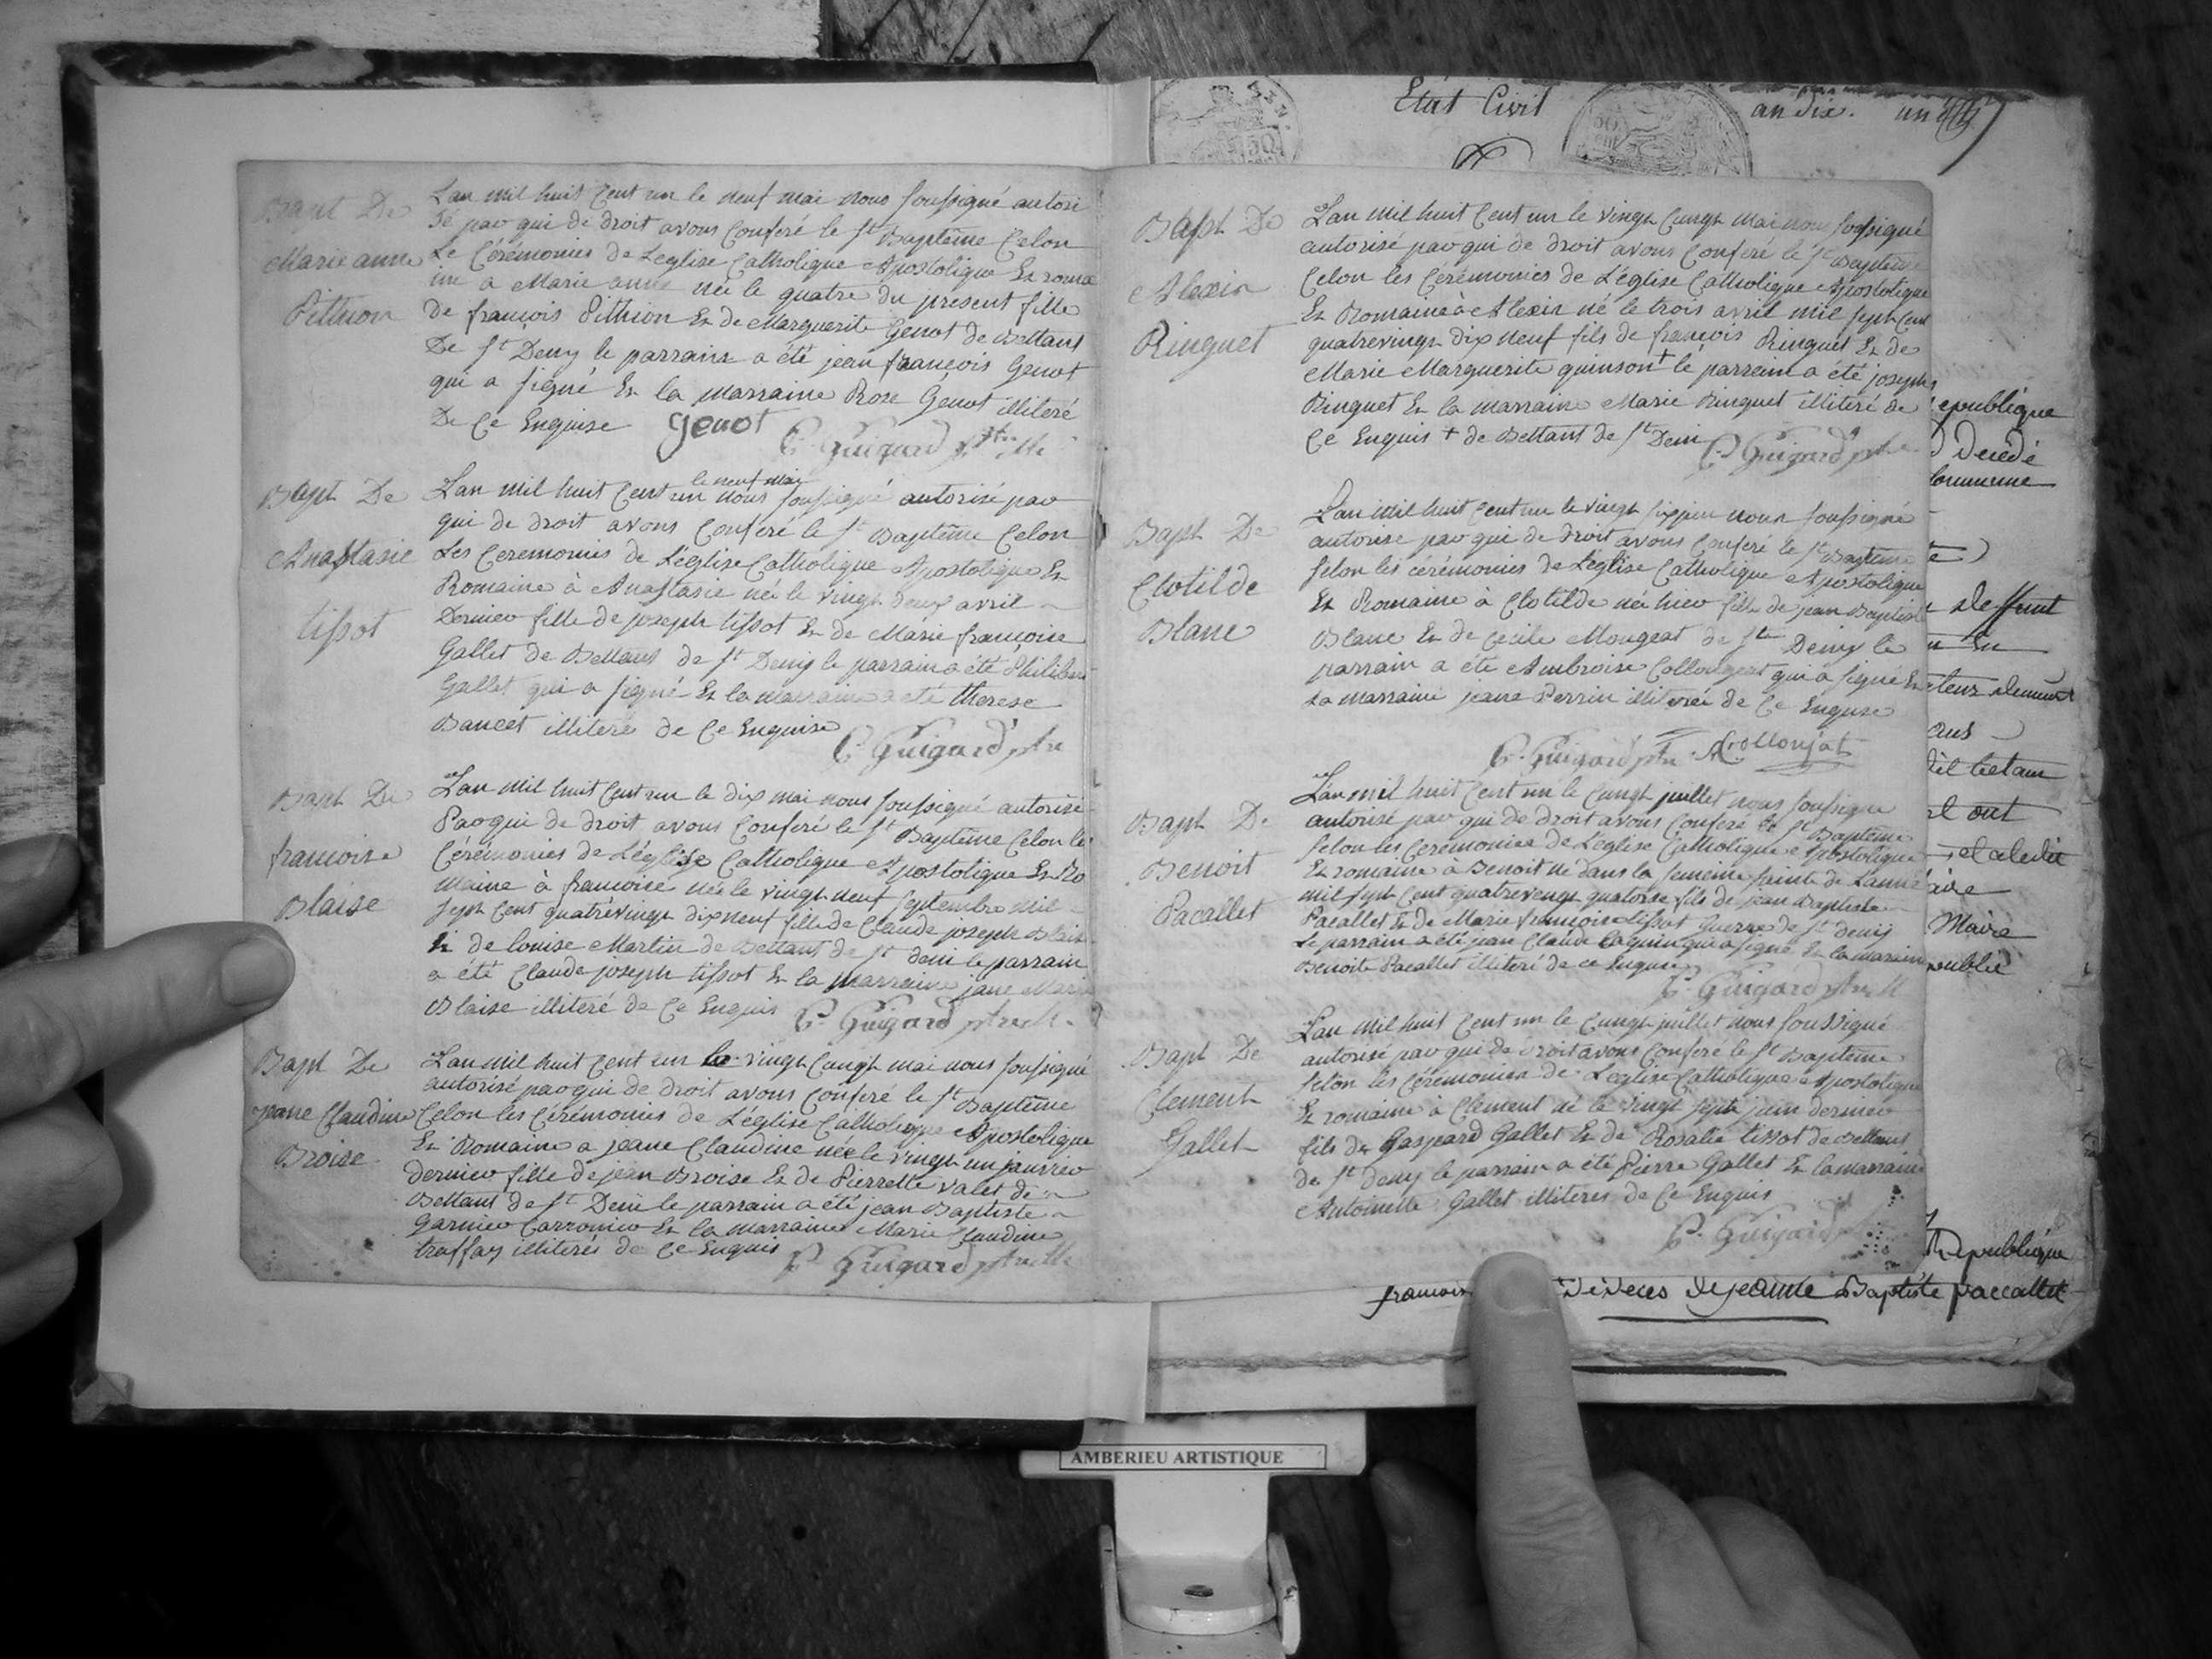 Bapt De
Marie anne
Pithion
Lan mil huit Cent un le neuf mai nous soussigné autori
sé par qui de droit avons Conferé le St Baptême Celon
Le Cérémonies de Leglise Catholique Apostolique Et roma
ine a Marie anne née le quatre du present fille
de françois Pithion Et de Marguerite Genot de Bettant
De St Deny le parrains a été jean françois Genot
qui a signé Et la marraine Rose Genot illiteré
De Ce Enquise genot
C. Guigard ptre
Bapt De
Anastasie
tissot
le neuf mai
Lan mil huit Cent un nous soussigné autorisé par
qui de droit avons Conferé le St Baptême Celon
Les Ceremonies de Léglise Catholique Apostolique Et
Romaine à Anastasie née le vingt deux avril
Dernier fille de joseph tissot Et de Marie françoise
Gallet de Bettans de St Deny le parrain a été Philibert
Gallet qui a signé Et la marraine a eté therese
illiteré de Ce Enquise
C. Guigard ptre
Bapt De
francoise
Blaise
Lan mil huit Cent un le dix mai nous soussigné autorisé
Par qui de droit avons Conferé le St Baptême Celon les
Cérémonies de Léglise Catholique Apostolique Et Ro
maine à francoise née le vingt neuf septembre mil
sept Cent quatrevingt dixneuf fille de Claude joseph Blaise
Et de louise Martin de Bettant de St deni le parrain
a été Claude joseph tissot Et la marraine jane Marie
Blaise illiteré de Ce Enquis C. Guigard ptre
Bapt De
jeane Claudine
Broise
Lan mil huit Cent un le vingt Cinqt mai nous soussigné
autorisé par qui de droit avons Conferé le St Baptême
Celon les Cérémonies de Léglise Catholique Apostolique
Et Romaine a jeane Claudine née le vingt un janvier
dernier fille de jean Broise Et de Pierrette valet de
Bettant de St Deni le parrain a été jean Baptiste
Garnier Et la marraine Marie Claudine
traffay illiterés de Ce Enquis C. Guigard ptre
Etat Civil an dix. un
Bapt De
Alexin
Ringuet
Lan mil huit Cent un le vingt Cinqt mai nous soussigné
autorisé par qui de droit avons Conferé le St Baptême
Celon les Cérémonies de Léglise Catholique Apostolique
Et Romaine à Alexin né le trois avril mil sept Cent
quatrevingt dix neuf fils de françois Ringuet Et de
Marie Marguerite quinson + le parrain a été joseph
Ringuet Et la marraine Marie Ringuet illiteré de
Ce Enquis + de Bettant de St Deni C. Guigard ptre
Bapt De
Clotilde
Blanc
Lan mil huit Cent un le vingt six juin nous soussigné
autorisé par qui de droit avons Conferé le St Baptême
selon les cérémonies de Léglise Catholique Apostolique
Et Romaine à Clotilde née hier fille de jean Baptiste
Blanc Et de Cecile Mongeat de St Deny le
parrain a été Ambroise Collongeat qui a signé Et
La marraine jeane Perrin illiterée de Ce Enquise
C. Guigard ptre A. Collonjat
Bapt De
Benoit
Pacallet
Lan mil huit Cent un le Cinqt juillet nous soussigné
autorisé par qui de droit avons Conferé le St Baptême
selon les Ceremonies de Léglise Catholique Apostolique
Et romaine à Benoit né dans la semeine sainte de Lanné
mil sept Cent quatrevengt quatorse fils de jean Baptiste
Pacallet Et de Marie francoise tissot Guerre de St deni
Le parrain a été jean Claude qui a signé Et la marain
Benoite Pacallet illiteré de ce Enquise
C. Guigard ptre
Bapt De
Clement
Gallet
Lan mil huit Cent un le Cinqt juillet nous soussigné
autorisé par qui de droit avons Conferé le St Baptême
selon les Cérémonies de Leglise Catholique Apostolique
Et romaine à Clement né le vingt sept juin dernier
fils de Gaspard Gallet Et de Rosalie tissot de Bettans
de St deny le parrain a été Pierre Gallet Et la marraine
Antoinette Gallet illiteres de Ce Enquis
C. Guigard
epublique
Decedé
Commune
Deffunt
ans
ont
Maire
Republique
francois De Deces de jeanne Baptiste paccallet
AMBERIEU ARTISTIQUE